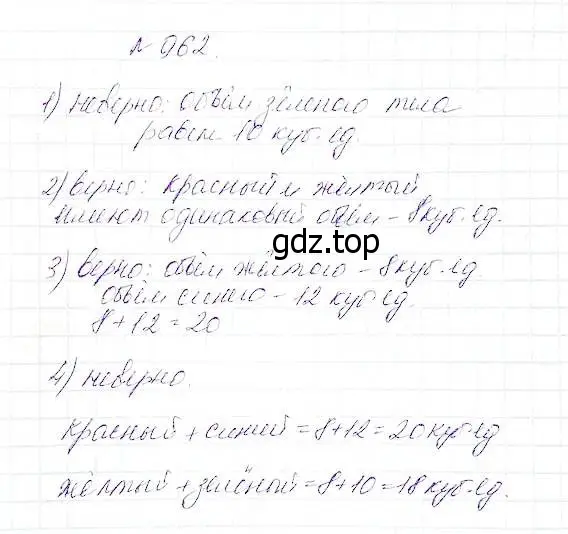 № 962.
1) неверно: объём зелёного тела
равен 10 куб. ед.
2) верно: красный и жёлтый
имеют одинаковый объём – 8 куб. ед.
gdz.top
3) верно: объём жёлтого – 8 куб. ед.
объём синего – 12 куб. ед.
8 + 12 = 20
4) неверно.
красный + синий = 8 + 12 = 20 куб ед
жёлтый + зелёный = 8 + 10 = 18 куб. ед.